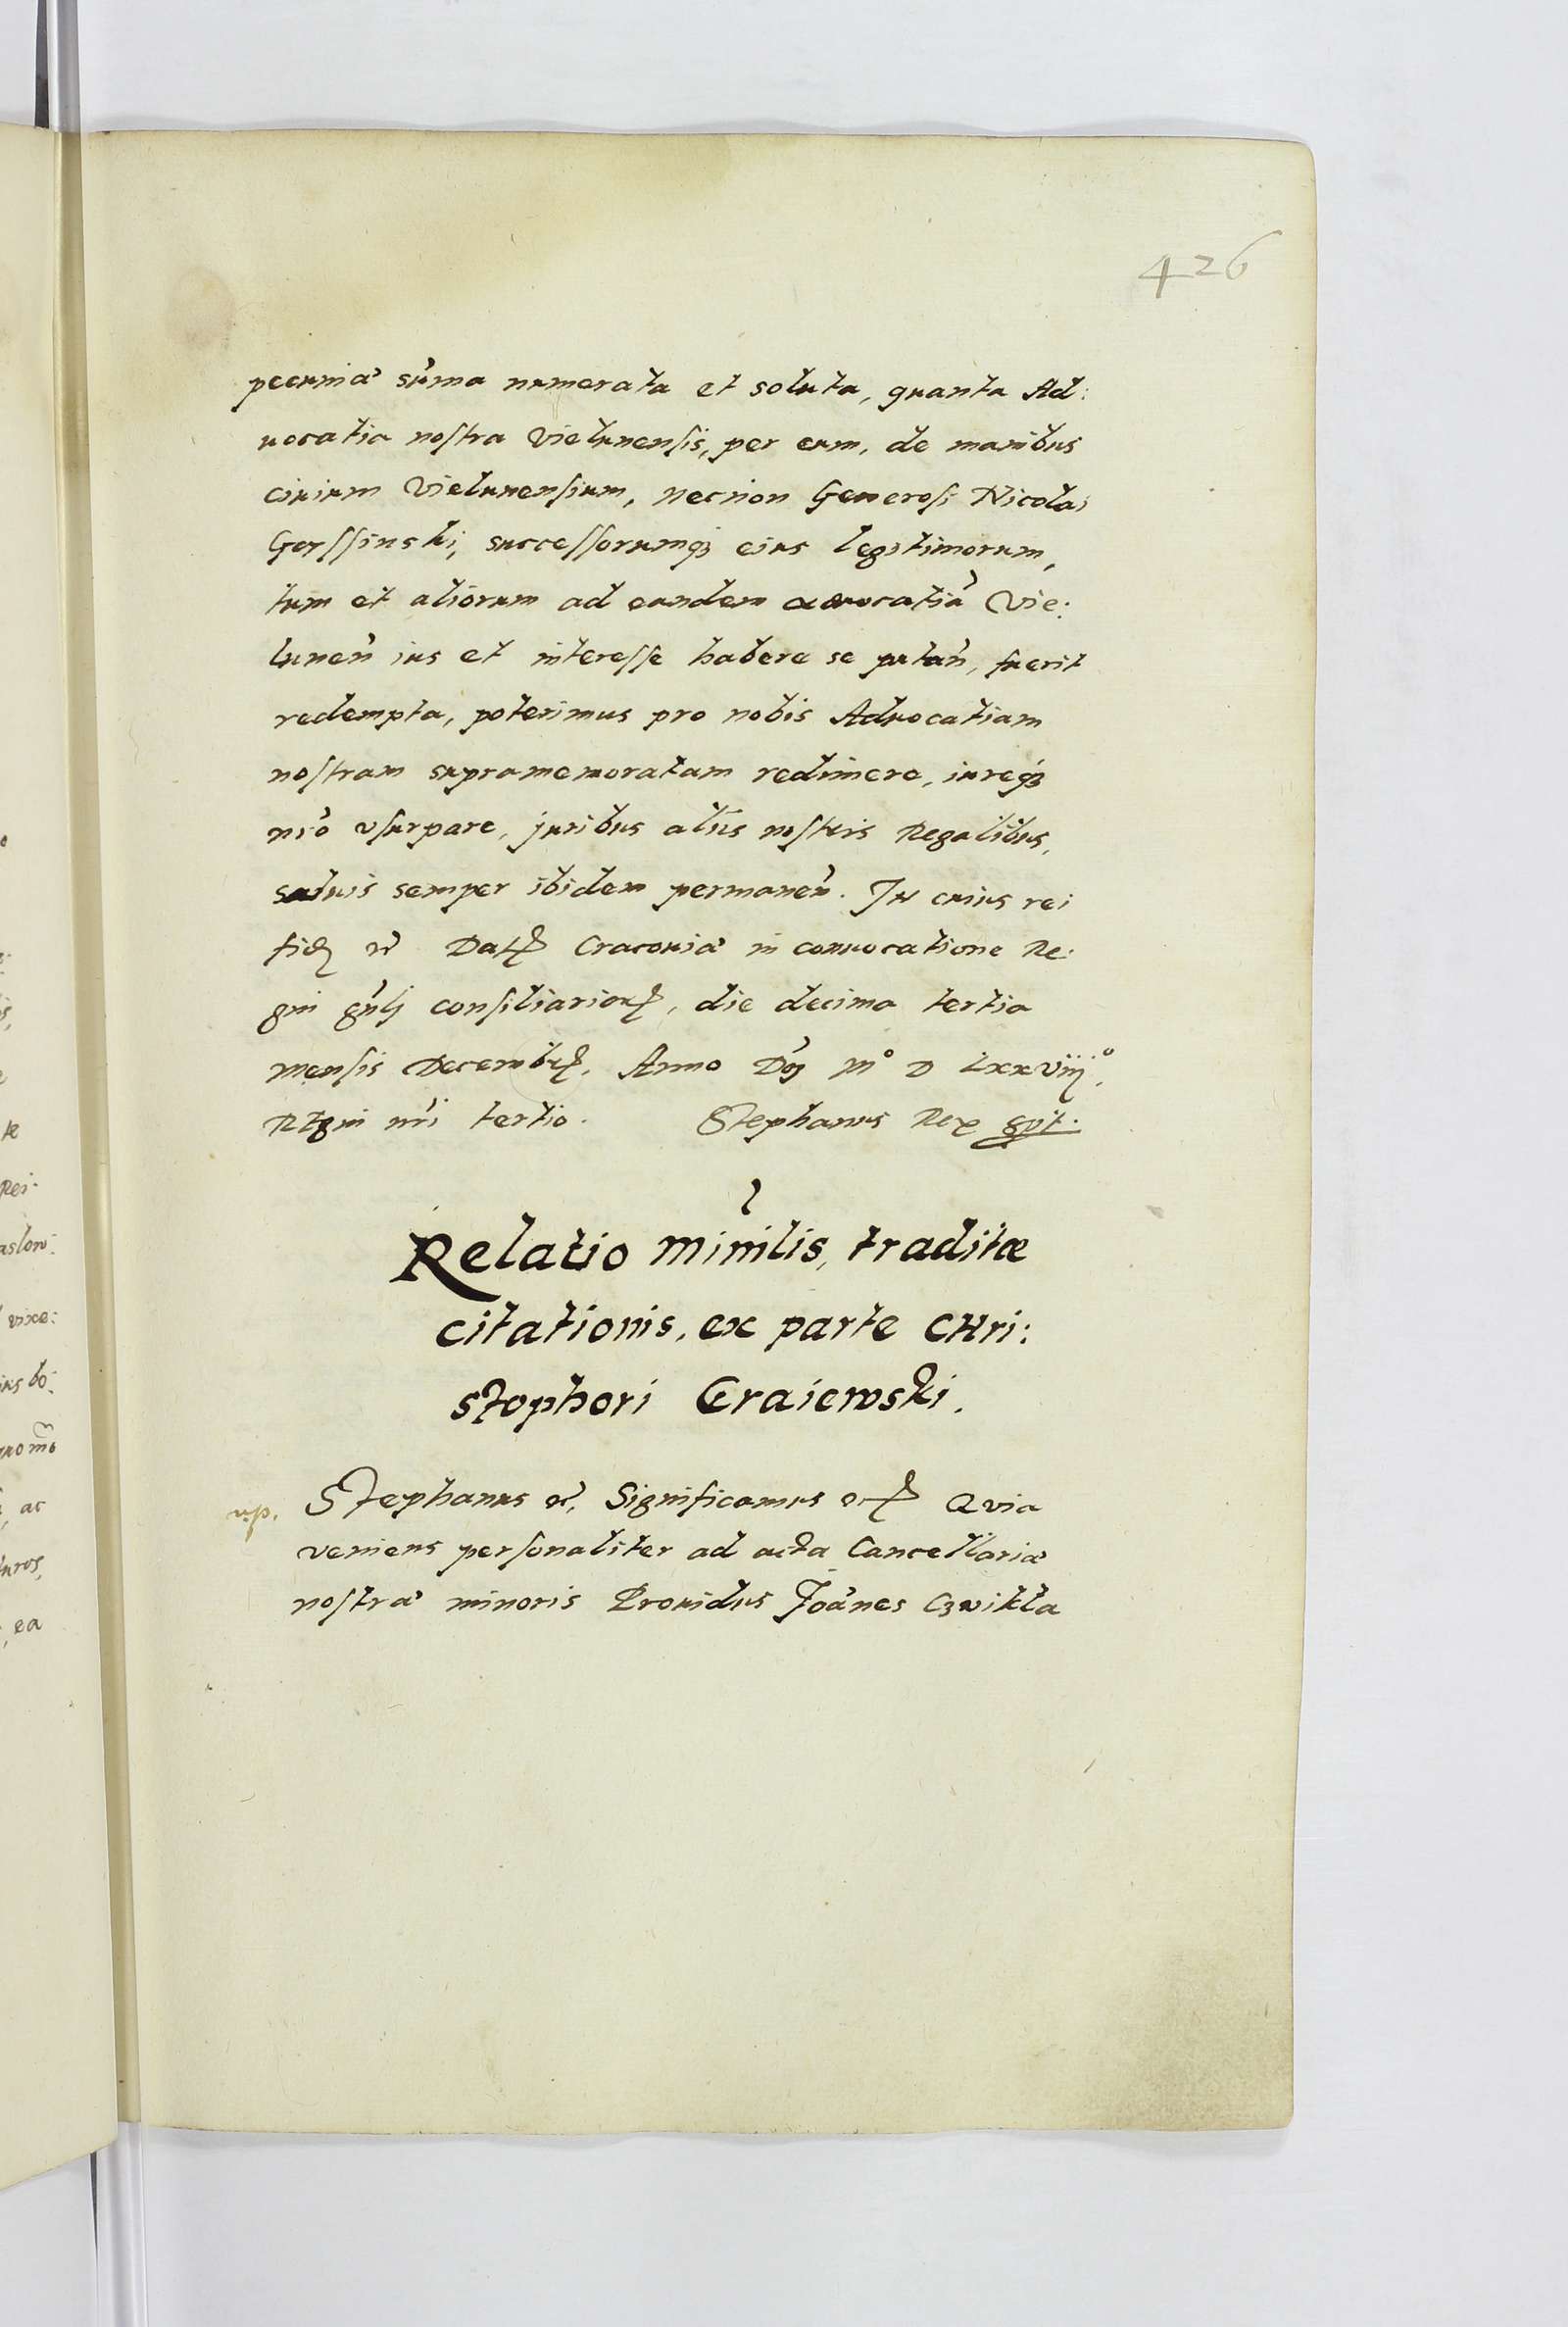 426
pecuniæ sum̃a numerata et soluta, quanta Ad:
uocatia nostra Vielunensis, per eum, de manibus
ciuium Vielunensium, necnon Generosi Nicolai
Gossinski, successorumq3 eius legitimorum,
tum et aliorum ad eandem aduocatiã Vie:
lunen̄ ius et interesse habere se putan̄, fuerit
redempta, poterimus pro nobis Aduocatiam
nostram supramemoratam redimere, iureq3
nr̄o vsurpare, juribus aliis nostris Regalibus,
saluis semper ibidem permanen̄. In cuius rei
fidē etc Datꝝ Cracouiæ in conuocatione Re:
gni gn̄li consiliarioꝝ, die decima tertia
mensis Decembrꝭ, Anno Dn̄j Mº D Lxxviijº.
Regni nr̄i tertio. Stephanus Rex sp̄t.
Relatio minĩlis, traditæ
citationis, ex parte CHri:
stophori Craiewski.
vp. Stephanus etc, Significamus etc Quia
veniens personaliter ad acta Cancellariæ
nostræ minoris Prouidus Joãnes Czwikla